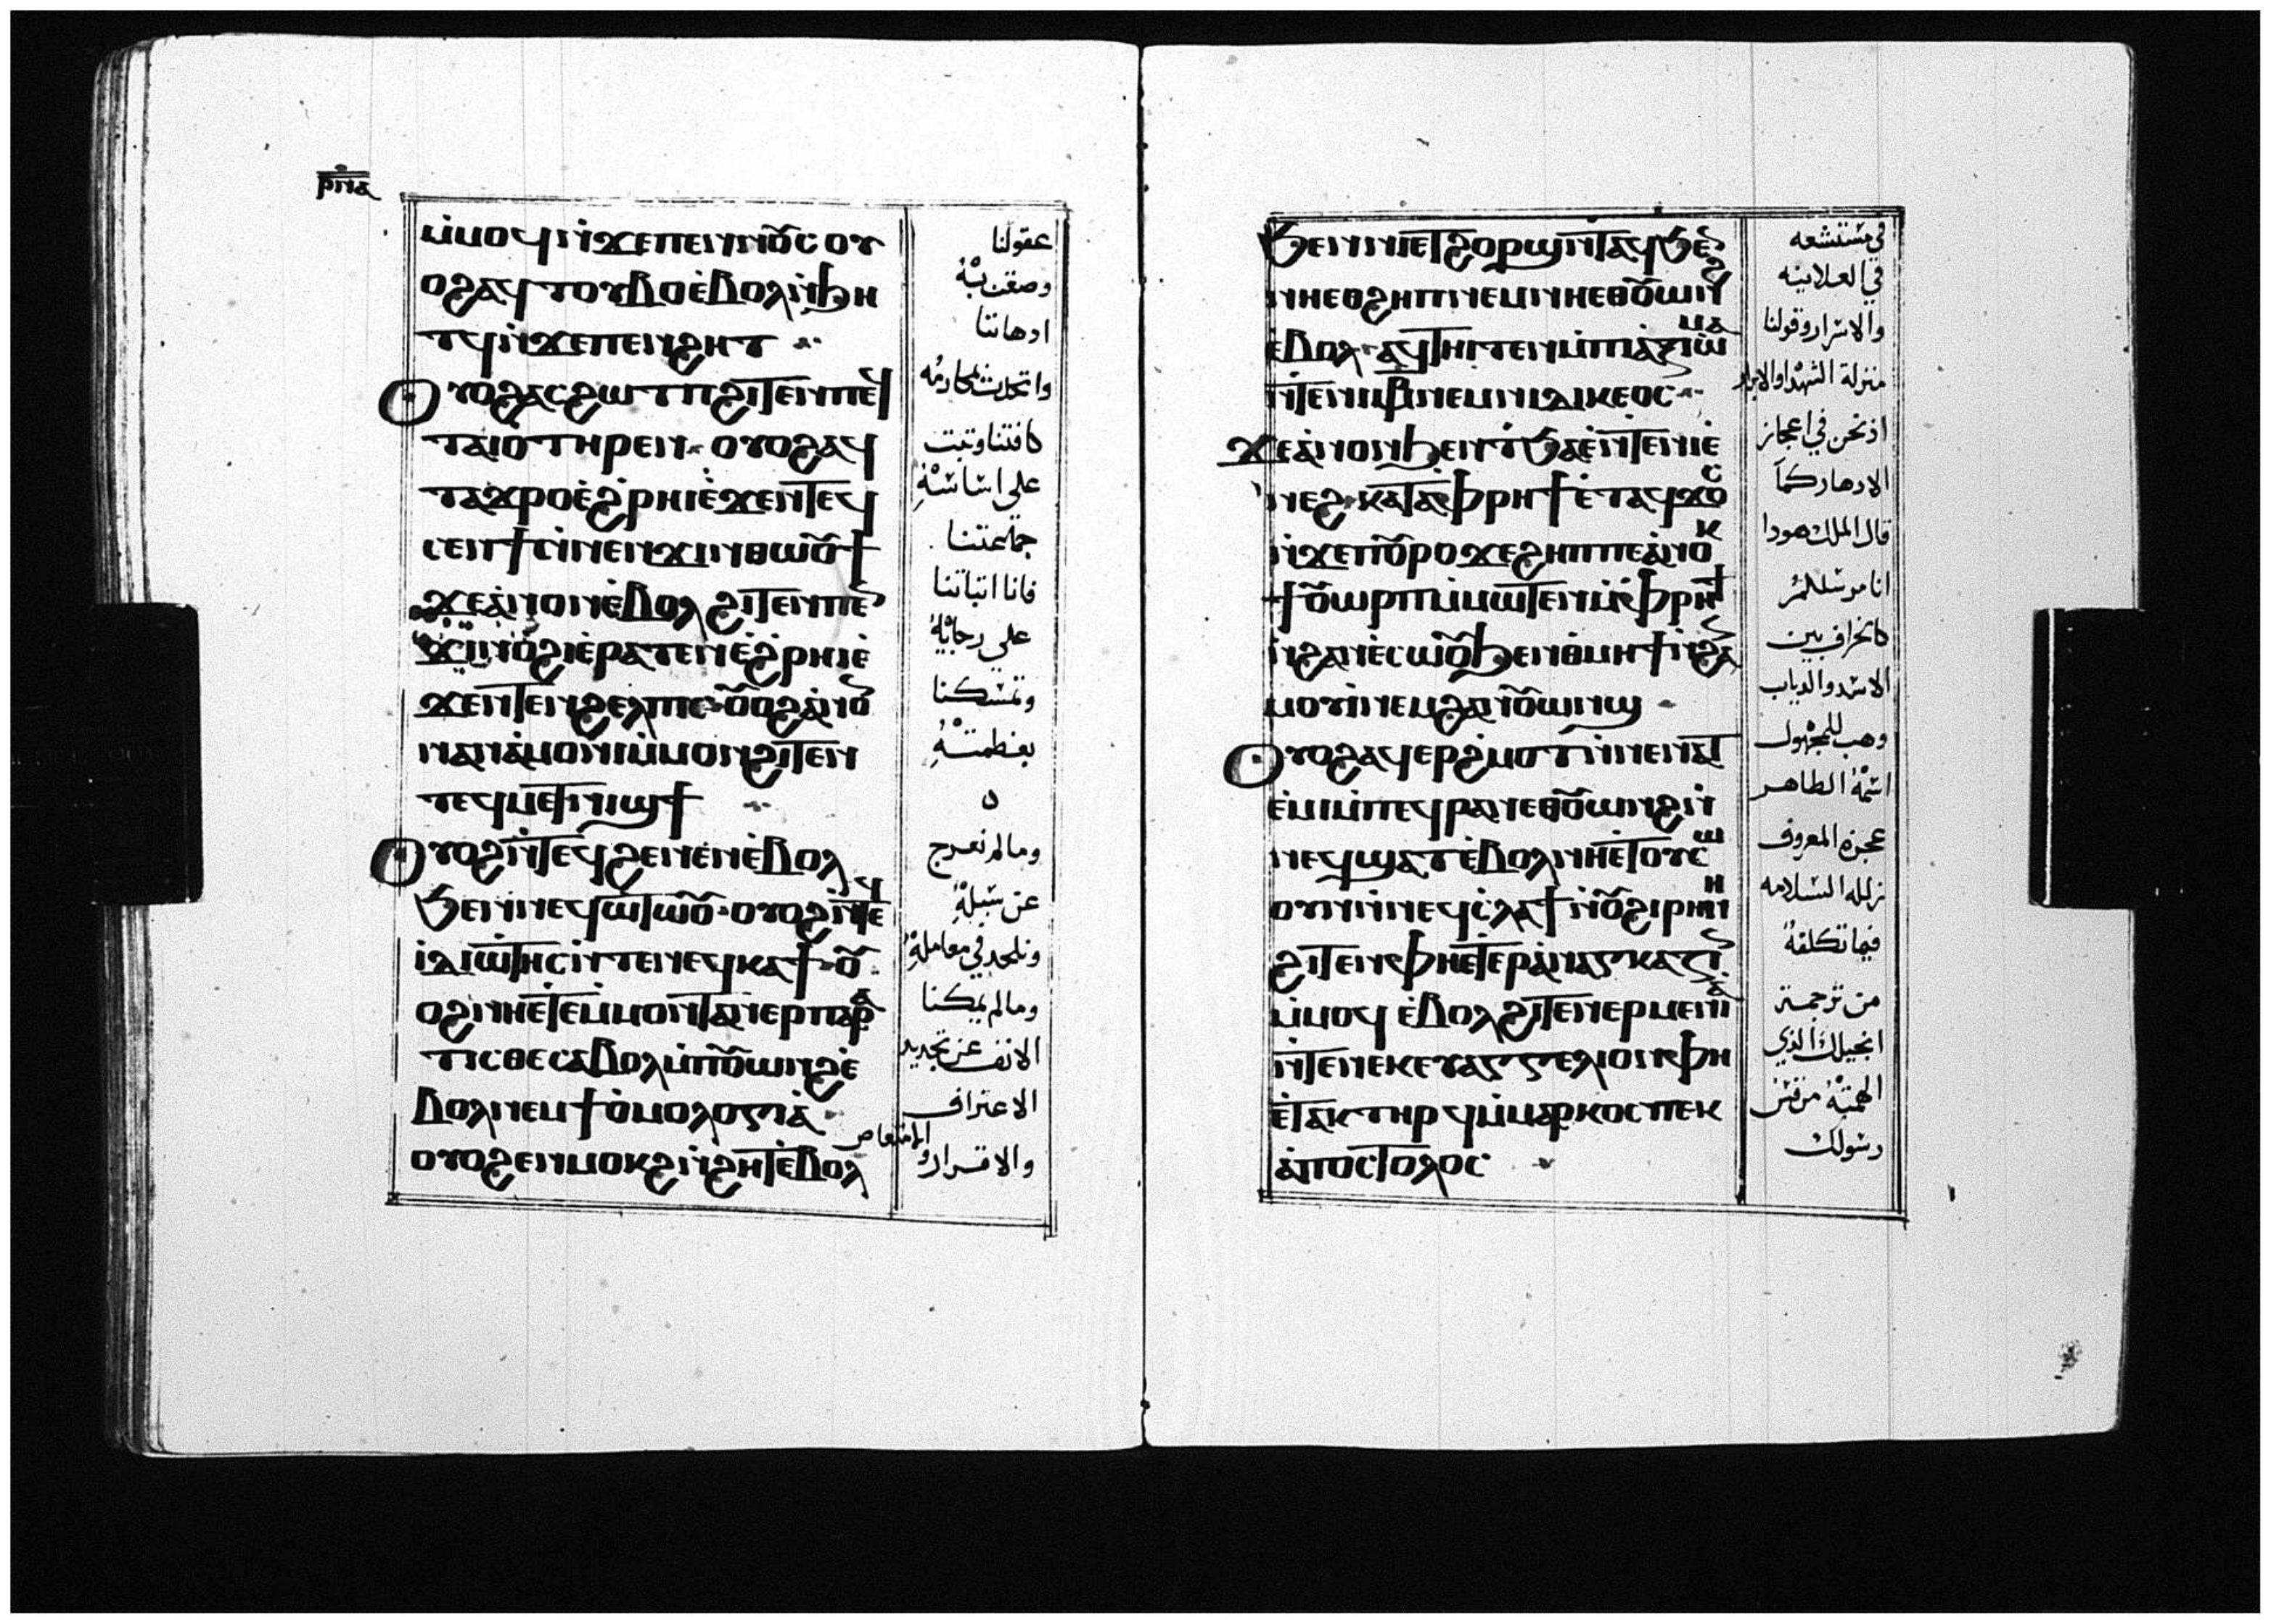 ⲣⲛⲁ
ⲙ̇ⲙⲟϥ ⲛ̇ϫⲉ ⲡⲉⲛⲛⲟⲩⲥ ⲟⲩ
ⲟϩ ⲁϥⲧⲟⲩⲃⲟ ⲉ̇ⲃⲟⲗ ⲛ̇ϧⲏ
ⲧϥ ⲛ̇ϫⲉ ⲡⲉⲛϩⲏⲧ
ⲟⲩⲟϩ ⲁⲥϩⲱⲧⲡ ϩⲓⲧⲉⲛ ⲡⲉϥ
ⲧⲁⲓⲟ̇ ⲧⲏⲣⲉⲛ ⲟⲩⲟϩ ⲁϥ
ⲧⲁϫⲣⲟ ⲉ̇ϩ̇ⲣⲏⲓ ⲉ̇ϫⲉⲛ ⲧⲉϥ
ⲥⲉⲛϯ ⲛ̇ⲛⲉⲛϫⲓⲛⲑⲱⲟⲩϯ
ϫⲉ ⲁ̇ⲛⲟⲛ ⲉ̇ⲃⲟⲗ ϩⲓⲧⲉⲛ ⲡⲉϥ
ϫⲓⲛⲟ̇ϩⲓ ⲉ̇ⲣⲁⲧⲉⲛ ⲉ̇ϩ̇ⲣⲏⲓ ⲉ̇
ϫⲉⲛ ⲧⲉⲛϩⲉⲗⲡⲓⲥ ⲟⲩⲟϩ ⲁ̇ⲛⲟⲛ
ⲛⲁⲛⲁ̇ⲙⲟⲛⲓ ⲙ̇ⲙⲟⲛ ϩⲓⲧⲉⲛ
ⲧⲉϥⲙⲉⲧⲛⲓϣϯ
ⲟⲩⲟϩ ⲛ̇ⲧⲉϥϩⲉⲛⲉⲛ ⲉ̇ⲃⲟⲗ
ϧⲉⲛ ⲛⲉϥⲱⲧⲱⲟⲩ ⲟⲩⲟϩ ⲛ̇ⲧⲉϥ
ⲓ̇ⲇⲓⲱⲧⲏⲥ ⲛ̇ⲧⲉ ⲛⲉϥⲕⲁϯ ⲟⲩ
ⲟϩ ⲛⲏⲉⲧⲉ ⲙ̇ⲙⲟⲛⲧⲁⲛ ⲉⲣⲡⲁⲣⲁ
ⲧⲓⲥⲑⲉ ⲥⲁⲃⲟⲗ ⲙ̇ⲡⲟⲩⲱⲛϩ ⲉ̇
ⲃⲟⲗ ⲛⲉⲙ ϯⲟ̇ⲙⲟⲗⲟⲅⲓⲁ̇
ⲟⲩⲟϩ ⲉⲛⲙⲟⲕϩ ⲛ̇ϩⲏⲧ ⲉ̇ⲃⲟⲗ
عقولنا
وصفت بيْهُ
ادهاننا
وانخدت لمحارمْه
كافتنا وتبت
على اساسْهُ
جماعتنا
فانا اتباتنا
على رجايْهُ
وتمسكنا
بعظمتْهُ
ه
وما لم نعرج
عن سبلْهُ
ونلحد في معاملتْهُ
وما لم يمكنا
الانف عن تجديد
الاعتراف
والاقرار والامتعاص
ϧⲉⲛ ⲛⲉⲧϩⲟⲣϣ ⲛ̇ⲧⲁϥ ϧⲉⲛ
ⲛⲏⲉⲑϩⲏⲡ ⲛⲉⲙ ⲛⲏⲉⲑⲟⲩⲱⲛϩ
ⲉ̇ⲃⲟⲗ ⲁϥⲧⲏⲓⲧⲉⲛ ⲙ̇ⲡⲁⲝⲓⲱⲙⲁ
ⲛ̇ⲧⲉ ⲛⲓⲙⲁⲣⲧⲩⲣⲟⲥ ⲛⲉⲙ ⲛⲓⲇⲓⲕⲉⲟⲥ
ϫⲉ ⲁ̇ⲛⲟⲛ ϧⲉⲛ ⲧ̇ϧⲁⲉ̇ ⲛ̇ⲧⲉ ⲛⲓⲉ̇
ⲛⲉϩ ⲕⲁⲧⲁ ⲫⲣⲏϯ ⲉ̇ⲧⲁϥϫⲟⲥ
ⲛ̇ϫⲉ ⲡⲟⲩⲣⲟ ϫⲉ ϩⲏⲡⲡⲉ ⲁ̇ⲛⲟⲕ
ϯⲟⲩⲱⲣⲡ ⲙ̇ⲙⲱⲧⲉⲛ ⲙ̇ⲫⲣⲏϯ
ⲛ̇ϩⲁⲛⲉ̇ⲥⲱⲟⲩ ϧⲉⲛ ⲑⲙⲏϯ ⲛ̇ϩⲁⲛ
ⲙⲟⲩⲓ̇ ⲛⲉⲙ ϩⲁⲛⲟⲩⲱⲛϣ
ⲟⲩⲟϩ ⲁϥⲉⲣϩ̇ⲙⲟⲧ ⲛ̇ⲛⲉⲛⲁⲧ
ⲉ̇ⲙⲓ ⲙ̇ⲡⲉϥⲣⲁⲛ ⲉⲑⲟⲩⲱⲛϩ ⲛ̇
ⲛⲉϥϣⲁⲧ ⲉ̇ⲃⲟⲗ ⲛ̇ⲛⲏⲉⲧⲟⲩⲥⲱ
ⲟⲩⲛ ⲛ̇ⲛⲉϥⲥ̇ⲗⲁϯ ⲛ̇ⲟⲩϩⲓⲣⲏⲛⲏ
ϩⲓⲧⲉⲛ ⲫⲏⲉⲧⲉⲣⲁ̇ⲛⲁⲅⲕⲁⲍⲓⲛ
ⲙ̇ⲙⲟϥ ⲉ̇ⲃⲟⲗ ϩⲓⲧⲉⲛ ⲉⲣⲙⲉⲛⲓⲁ̇
ⲛ̇ⲧⲉ ⲛⲉⲕⲉⲩⲁⲅⲅⲉⲗⲓⲟⲛ ⲫⲏ
ⲉ̇ⲧⲁⲕⲧⲏⲓϥ ⲙ̇ⲙⲁⲣⲕⲟⲥ ⲡⲉⲕ
ⲁ̇ⲡⲟⲥⲧⲟⲗⲟⲥ
في مستشعه
في العلانيه
والاسرار وقولنا
منزلة الشهدا والابرار
اذ نحن في اعجاز
الادهار كما
قال الملك هودا
انا مرسلكم
كالخراف بين
الاسد والدياب
وهب للمجهول
اسمْهُ الطاهر
عجزه المعروف
زلله السلامه
فيما تكلفهُ
من ترجمة
انجيلك الذي
الهمتْهُ مرقس
رسولك